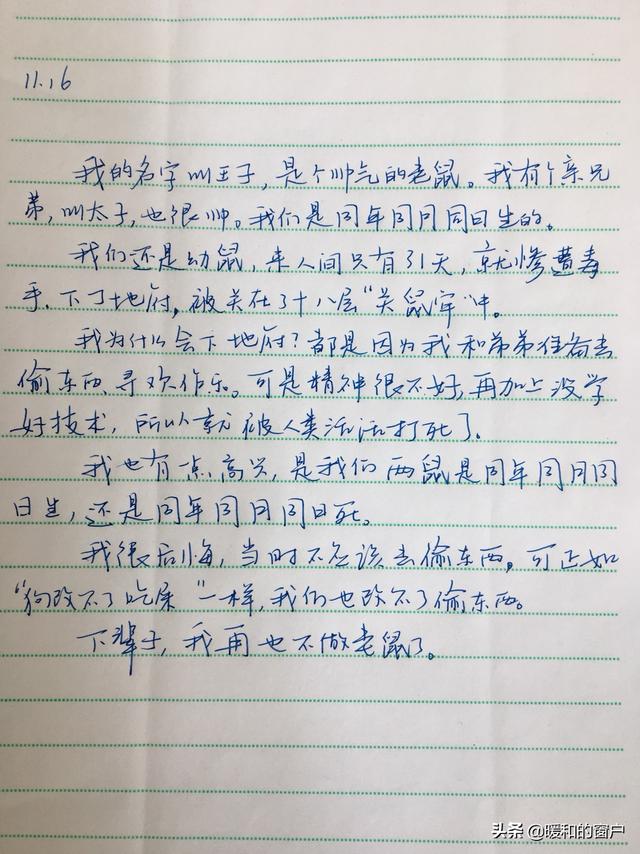 11.16
我的名字叫王子，是个帅气的老鼠。我有个亲兄
弟，叫太子，也很帅。我们是同年同月同日生的。
我们还是幼鼠，来人间只有31天，就惨遭毒
手，下了地府，被关在了十八层“关鼠牢”中。
我为什么会下地府？都是因为我和弟弟准备去
偷东西、寻欢作乐。可是精神很不好，再加上没学
好技术，所以就被人类活活打死了。
我也有一点高兴，是我们两鼠是同年同月同
日生，还是同年同月同日死。
我很后悔，当时不应该去偷东西。可正如
“狗改不了吃屎”一样，我们也改不了偷东西。
下辈子，我再也不做老鼠了。
头条 @暖和的窗户